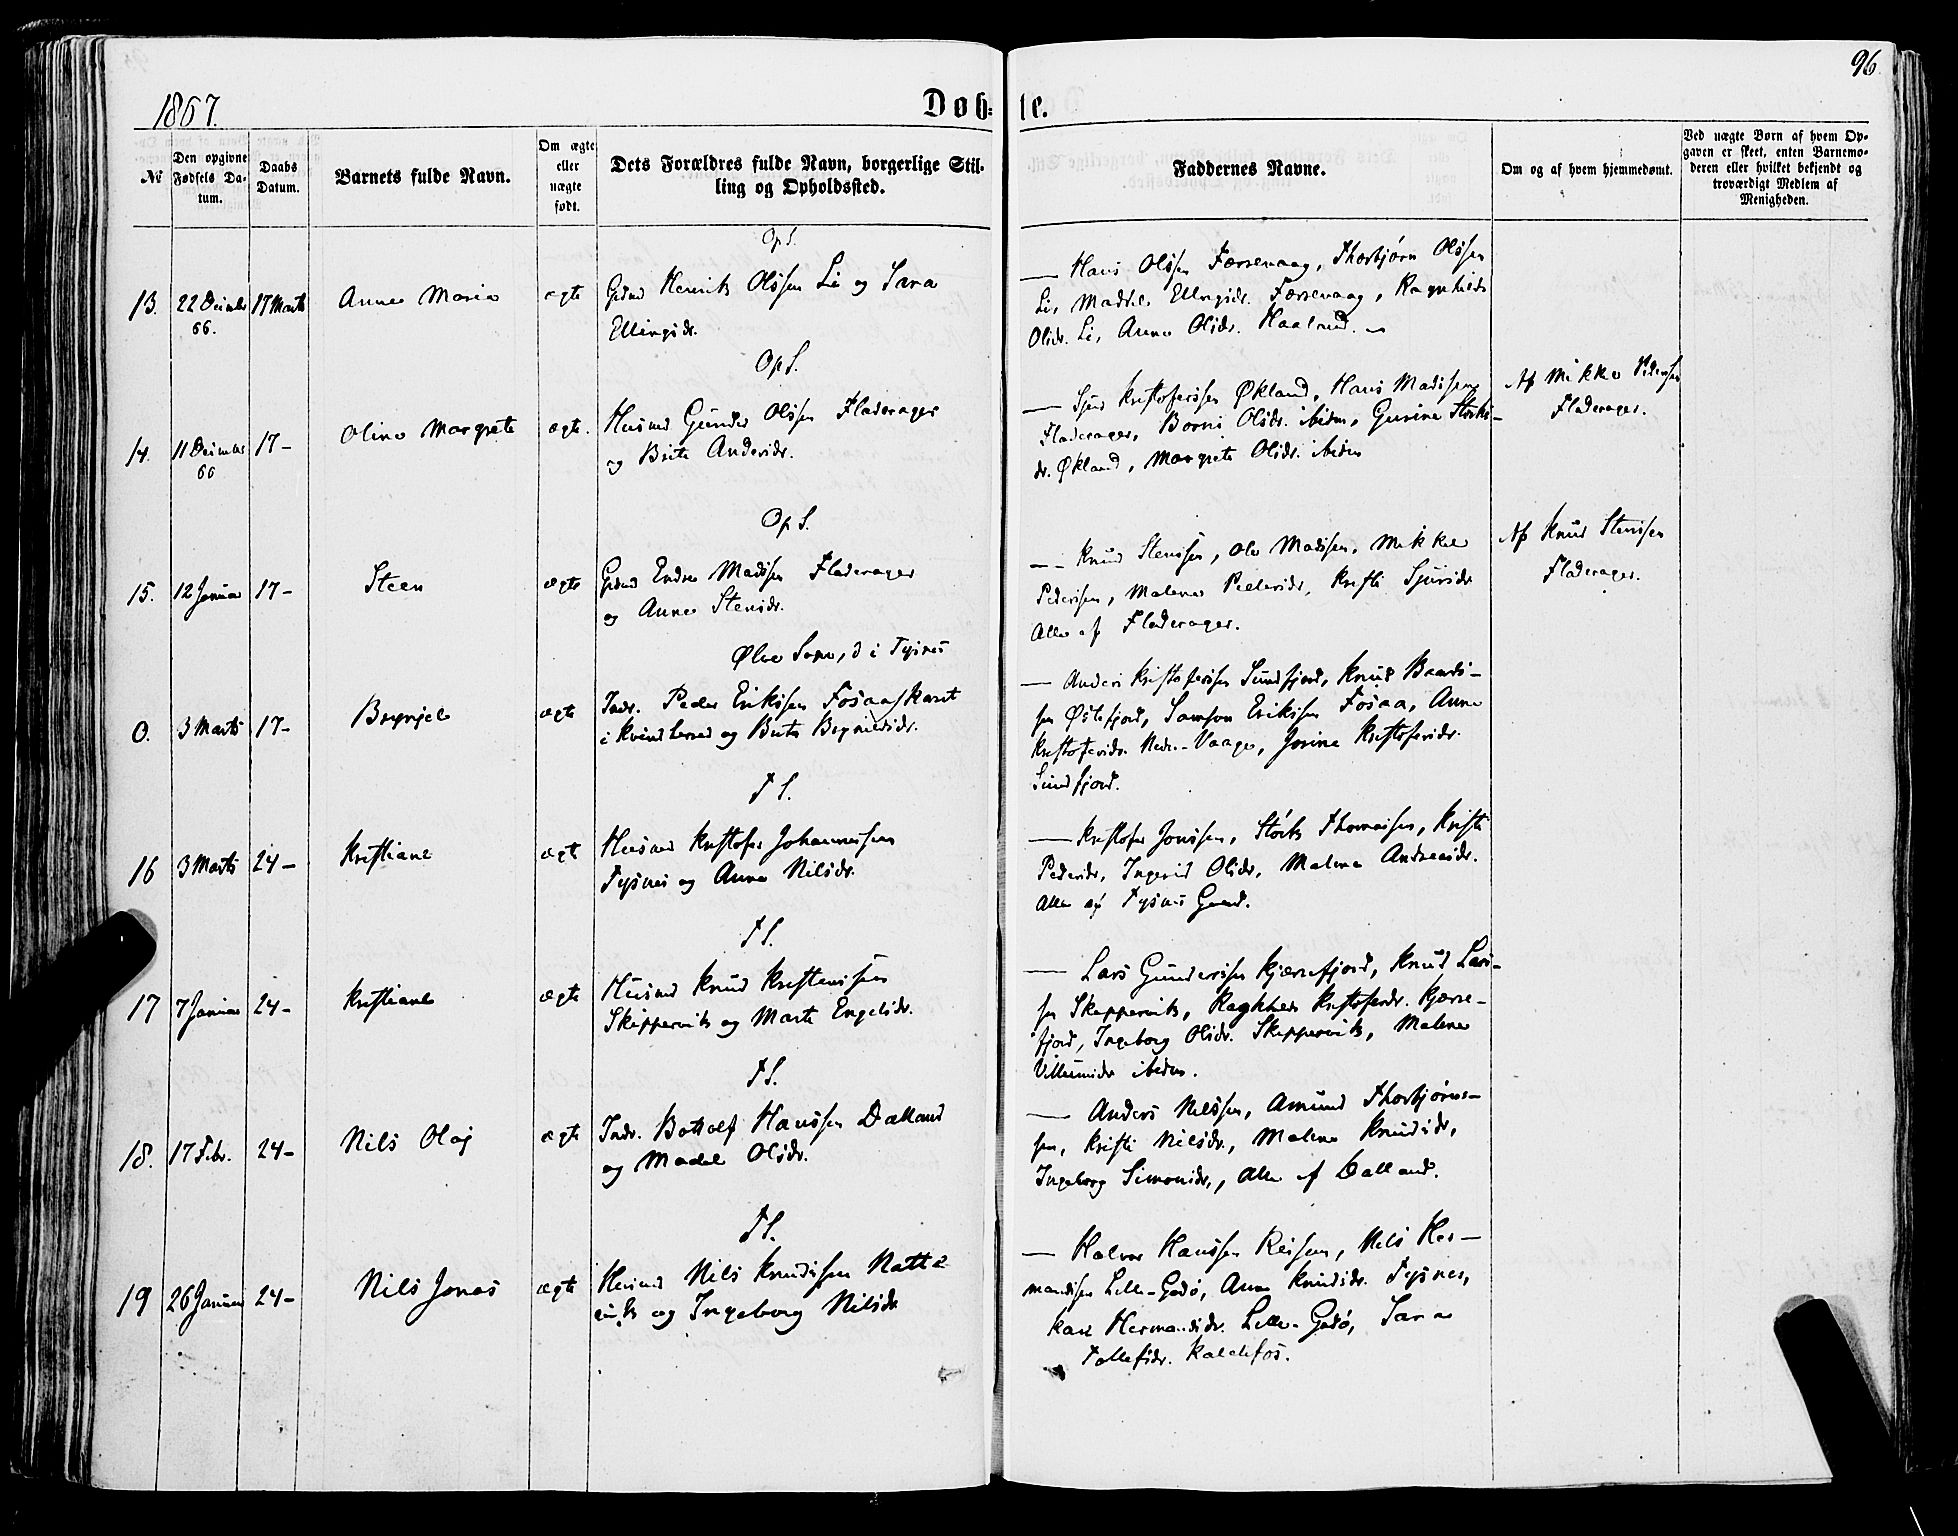 96.
1867.
Døbte.
№
Den opgivne Fødsels Datum.
Daabs Datum.
Barnets fulde Navn.
Om ægte eller uægte født.
Dets Forældres fulde Navn, borgerlige Stilling og Opholdssted.
Faddernes Navne.
Om og af hvem hjemmedøbt.
Ved uægte Børn af hvem Opgaven er skeet, enten Barnemoderen eller hvilket bekjendt og troværdigt Medlem af Menigheden.
OpS.
13. 22 December 66. 17 Marts Anna Maria ægte
Grdmd Henrik Olssen Li og Sara
Ellingsdr.
— Hans Olssen Færsevaag, Thorbjørn Olssen
Li, Maddel Ellingsdr. Færsevaag, Ragnhilde
Olsdr. Li, Anna Olsdr. Haaland.
OpS.
14. 11 December 66 17- Oline Margrete ægte.
Husmd Gunder Olssen Fladerager
og Brita Andersdr.
— Sjur Kristofersen Økland, Hans Madssen
Fladerager, Borni Olsdr. ibidm, Gurine Storks-
dr. Økland, Margrete Olsdr. ibidm
Af Mikkel Pedersen
Fladerager.
OpS.
15. 12 Januar 17- Steen ægte
Grdmd Endre Madssen Fladerager
og Anna Stensdr.
— Knud Stenssen, Ole Madssen, Mikkel
Pederssen, Malena Pedersdr, Kristi Sjursdr
Alle af Fladerager.
Af Knud Stenssen
Fladerager.
Ølve Sogn, d i Tysnes
0. 3 Marts 17- Brynjel ægte
Indr. Peder Erikssen Fosaaskaret
i Kvindherred og Brita Brynildsdr.
— Anders Kristoferssen Sundfjord, Knud Baards-
sen Østefjord, Samson Erikssen Fosaa, Anna
Kristofersdr. Nedre-Vaage, Josine Kristofersdr.
Sundfjord.
TS.
16 3 Marts 24- Kristiane ægte
Husmd Kristofer Johannessen
Tysnes og Anna Nilsdr.
— Kristofer Jonssen, Størk Thomassen, Kristi
Pedersdr, Ingerid Olsdr, Malena Andreasdr.
Alle af Tysnes Gaard.
TS.
17 7 Januar 24- Kristiane ægte
Husmd Knud Kristenssen
Skippervik og Marta Engelsdr.
— Lars Gunderssen Kjærsefjord, Knud Lars-
sen Skippervik, Ragnhild Kristofersdr. Kjærse-
fjord, Ingeborg Olsdr. Skippervik, Malena
Villumsdr ibidm.
TS.
18. 17 Febr. 24- Nils Olaj ægte
Indr. Bottolf Hanssen Dalland
og Madel Olsdr.
— Anders Nilssen, Amund Thorbjørns-
sen, Kristi Nilsdr., Malena Knudsdr,
Ingeborg Simonsdr., Alle af Dalland.
TS.
19 26 Januar 24- Nils Jonas ægte
Husmd Nils Knudssen Natte-
vik og Ingeborg Nilsdr
— Halvor Hanssen Reissen, Nils Her-
mandssen Lille-Godø, Anna Knudsdr. Tysnes,
Kari Hermandsdr. Lille-Godø, Sara
Tollefsdr. Kaldefos.